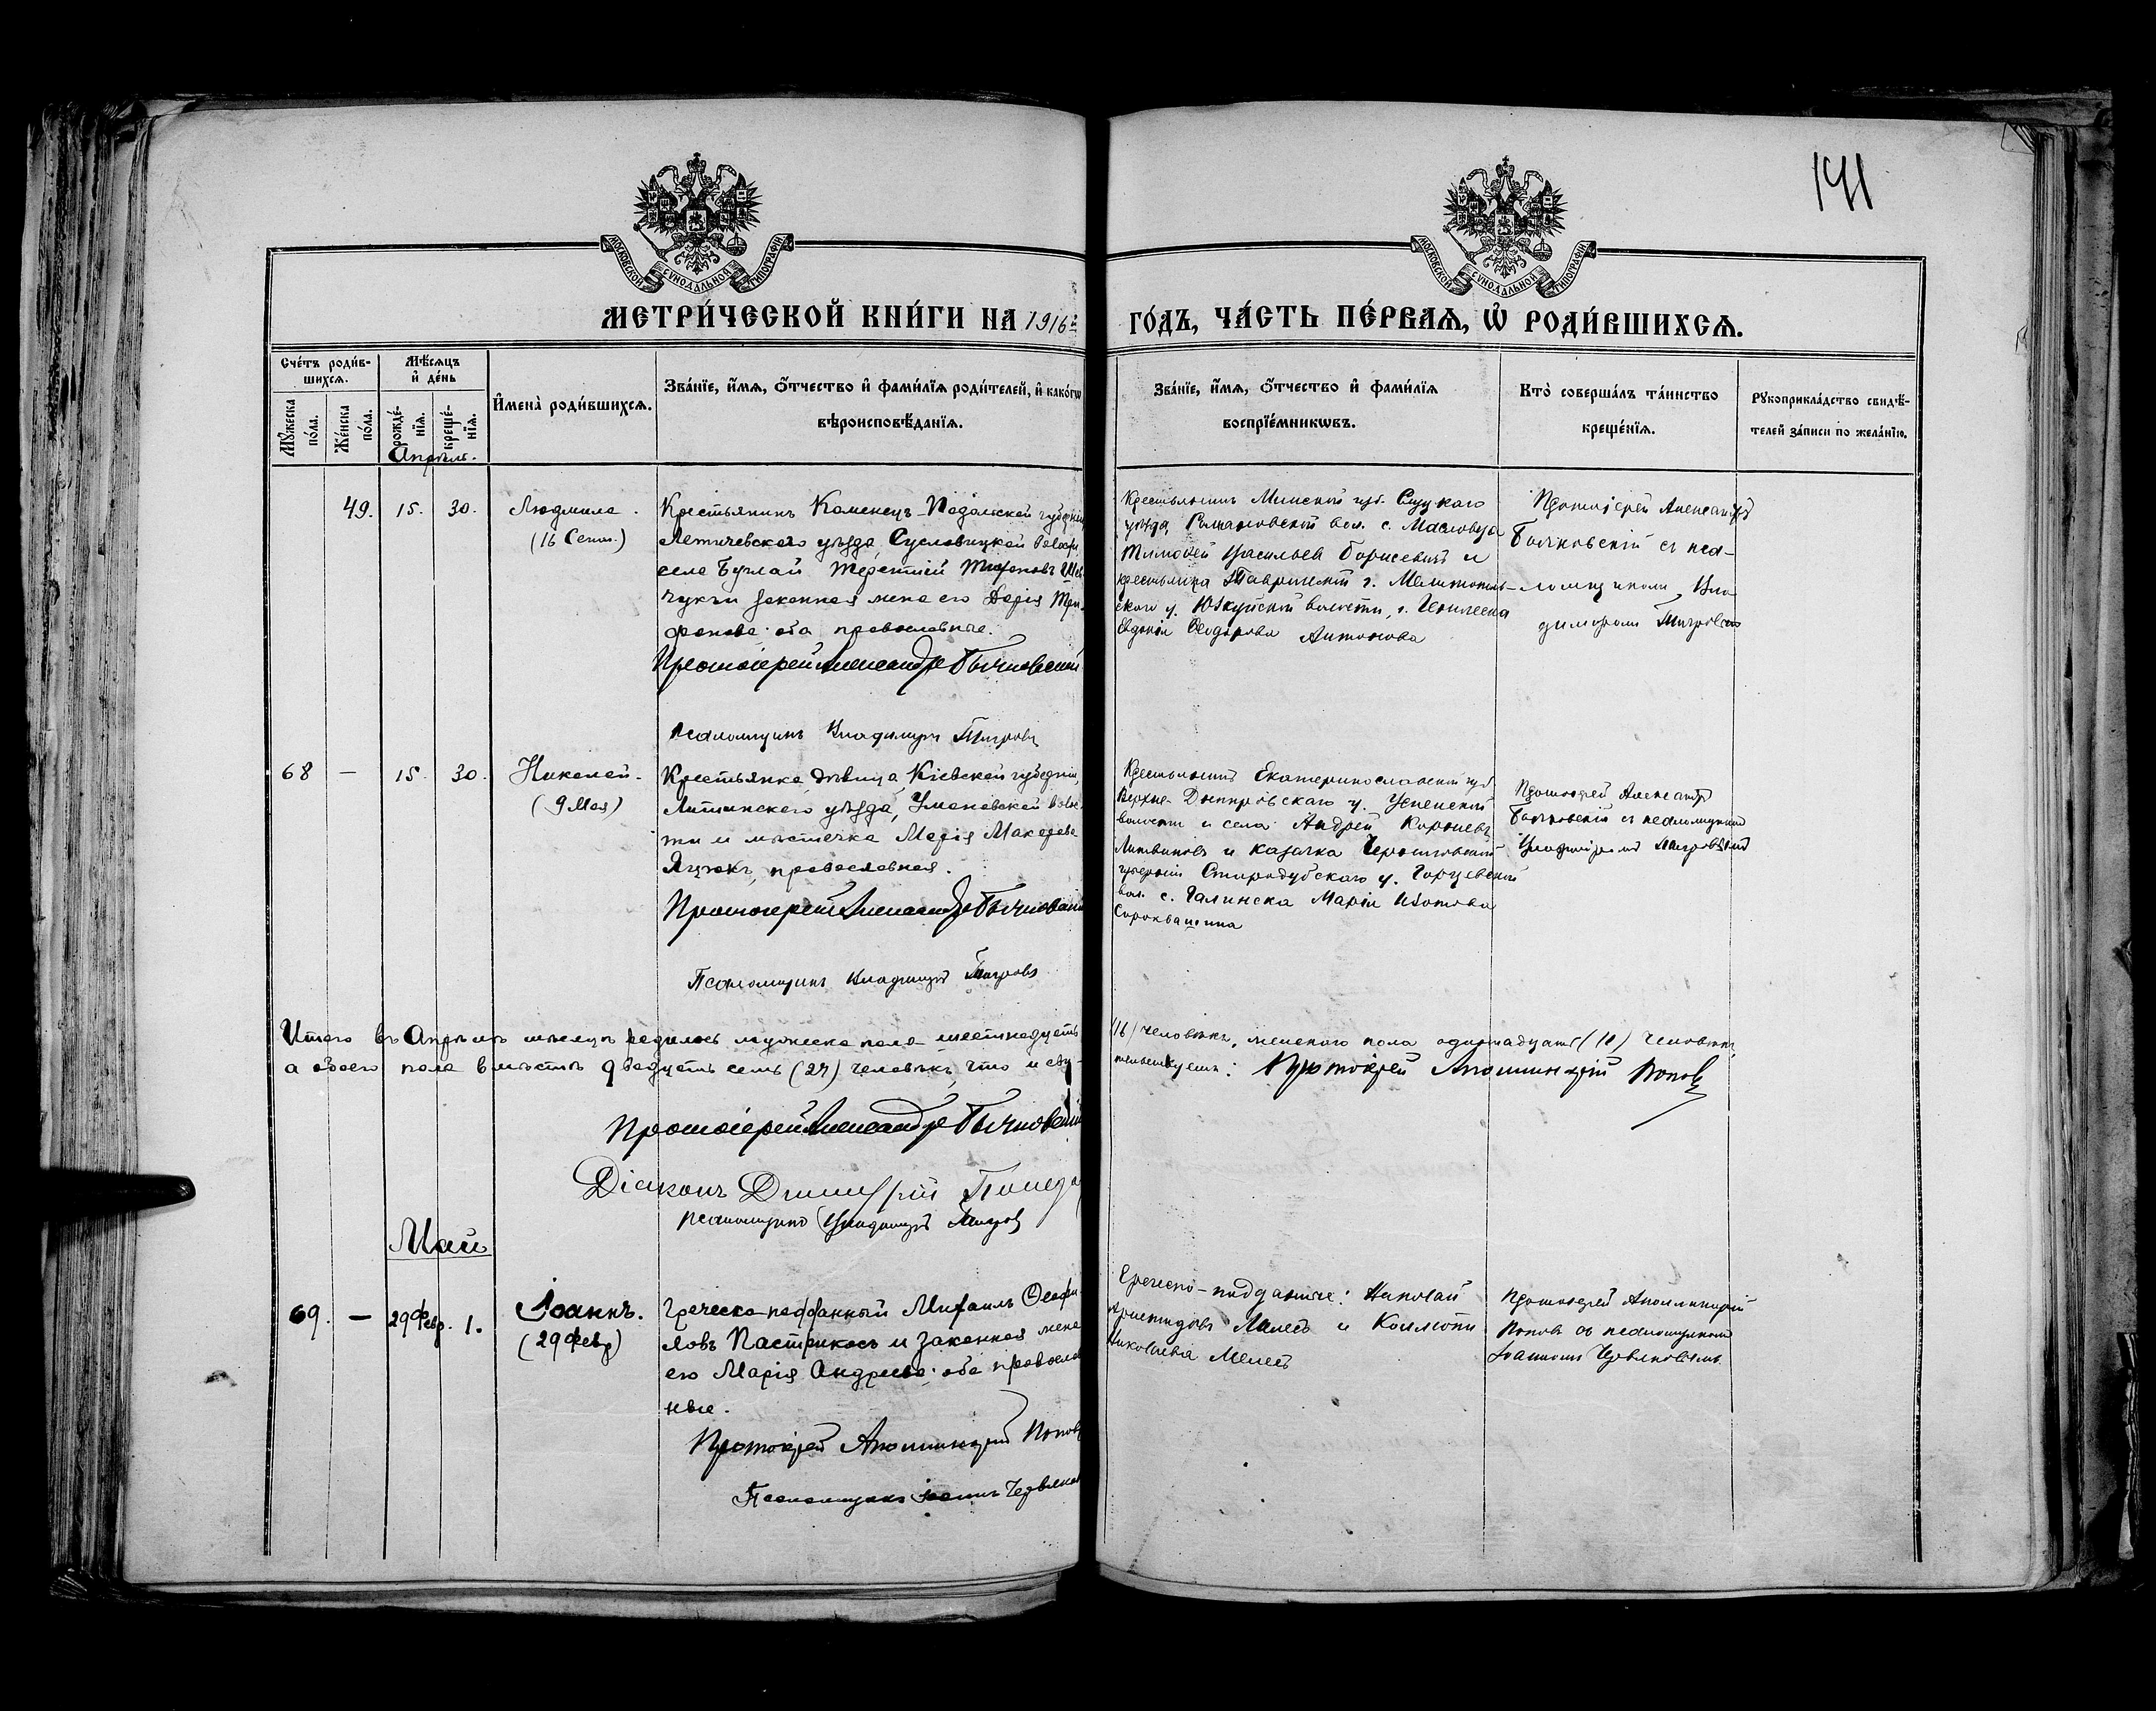 141
МОСКОВСКОЙ СѴНОДАЛЬНОЙ ТИПОГРАФІИ
МОСКОВСКОЙ СѴНОДАЛЬНОЙ ТИПОГРАФІИ
МЕТРИ́ЧЕСКОЙ КНИ́ГИ НА 1916й
ГО́ДЪ, ЧА́СТЬ ПЕ́РВАѦ, Ѡ҆ РОДИ́ВШИХСѦ.
Сче́тъ роди́в-
шихсѧ.
Мѣ́сѧцъ
и҆ де́нь
Мꙋ́жеска
по́ла.
Же́нска
по́ла.
рожде́-
нїѧ.
креще́-
нїѧ.
И҆мена̀ роди́вшихсѧ.
Зва́нїе, и҆́мѧ, ѻ҆́тчество и҆ фами́лїѧ роди́телей, и҆ како́гѡ
вѣроисповѣ́данїѧ.
Зва́нїе, и҆́мѧ, ѻ҆́тчество и҆ фами́лїѧ
воспрїе́мникѡвъ.
Кто̀ соверша́лъ та́инство
креще́нїѧ.
Рꙋкоприкла́дство свидѣ́-
телей за́писи по жела́нїю.
Апрѣль.
49. 15. 30. Людмила.
(16 Сент.)
Крестьянинъ Каменецъ-Подольской губерніи
Летичевскаго уѣзда, Сусловецкой волости,
села Буглай Терентій Трифоновъ Шев-
чукъ и законная жена его Дарія Три-
фонова; оба православные.
Протоіерей Александръ Бычковскій
Псаломщикъ Владимиръ Тигровъ
Крестьянинъ Минской губ. Слуцкаго
уѣзда, Романовской вол. с.
Тимофей Васильевъ Борисевичъ и
крестьянка Таврической г. Мелитополь-
скаго у. волости,
Евдокія Ѳеодорова Антонова
Протоіерей Александръ
Бычковскій съ пса-
ломщикомъ Вла-
димиромъ
68 — 15. 30. Николай.
(9 Мая)
Крестьянка дѣвица, Кіевской губерніи,
уѣзда, Уманевской волос-
ти и мѣстечка Марія Макарова
православная.
Протоіерей Александръ Бычковскій
Псаломщикъ Владимиръ Тигровъ
Крестьянинъ Екатеринославской губ
Верхне-Днепровскаго у. Успенской
волости и села Андрей Корнеевъ
Литвиновъ и казачка Черниговской
губерніи Стародубскаго у.
вол. с. Марія
Протоіерей Александръ
Бычковскій съ псаломщикомъ
Владимиромъ
Итого въ Апрѣлѣ мѣсяцѣ родилось мужеска пола шестнадцать
(16) человѣкъ, женскаго пола одиннадцать (11) человѣкъ,
а обоего пола вмѣстѣ двадцать семь (27) человѣкъ, что и сви-
тельствуемъ: Протоіерей Аполлинарій Поповъ
Протоіерей Александръ Бычковскій
Діаконъ Димитрій
Псаломщикъ Владимиръ Тигровъ
Май
69. — 29 Февр. 1. Іоаннъ.
(29 Февр)
Греческо-подданный Михаилъ Ѳеофи-
ловъ Пастрикосъ и законная жена
его Марія Андреева; оба православ
ные.
Протоіерей Аполлинарій Поповъ
Псаломщикъ Іоаннъ Червяков
Греческо-подданные: Николай
Аристидовъ и
Николаева
Протоіерей Аполлинарій
Поповъ съ псаломщикомъ
Іоанномъ Червяковымъ.